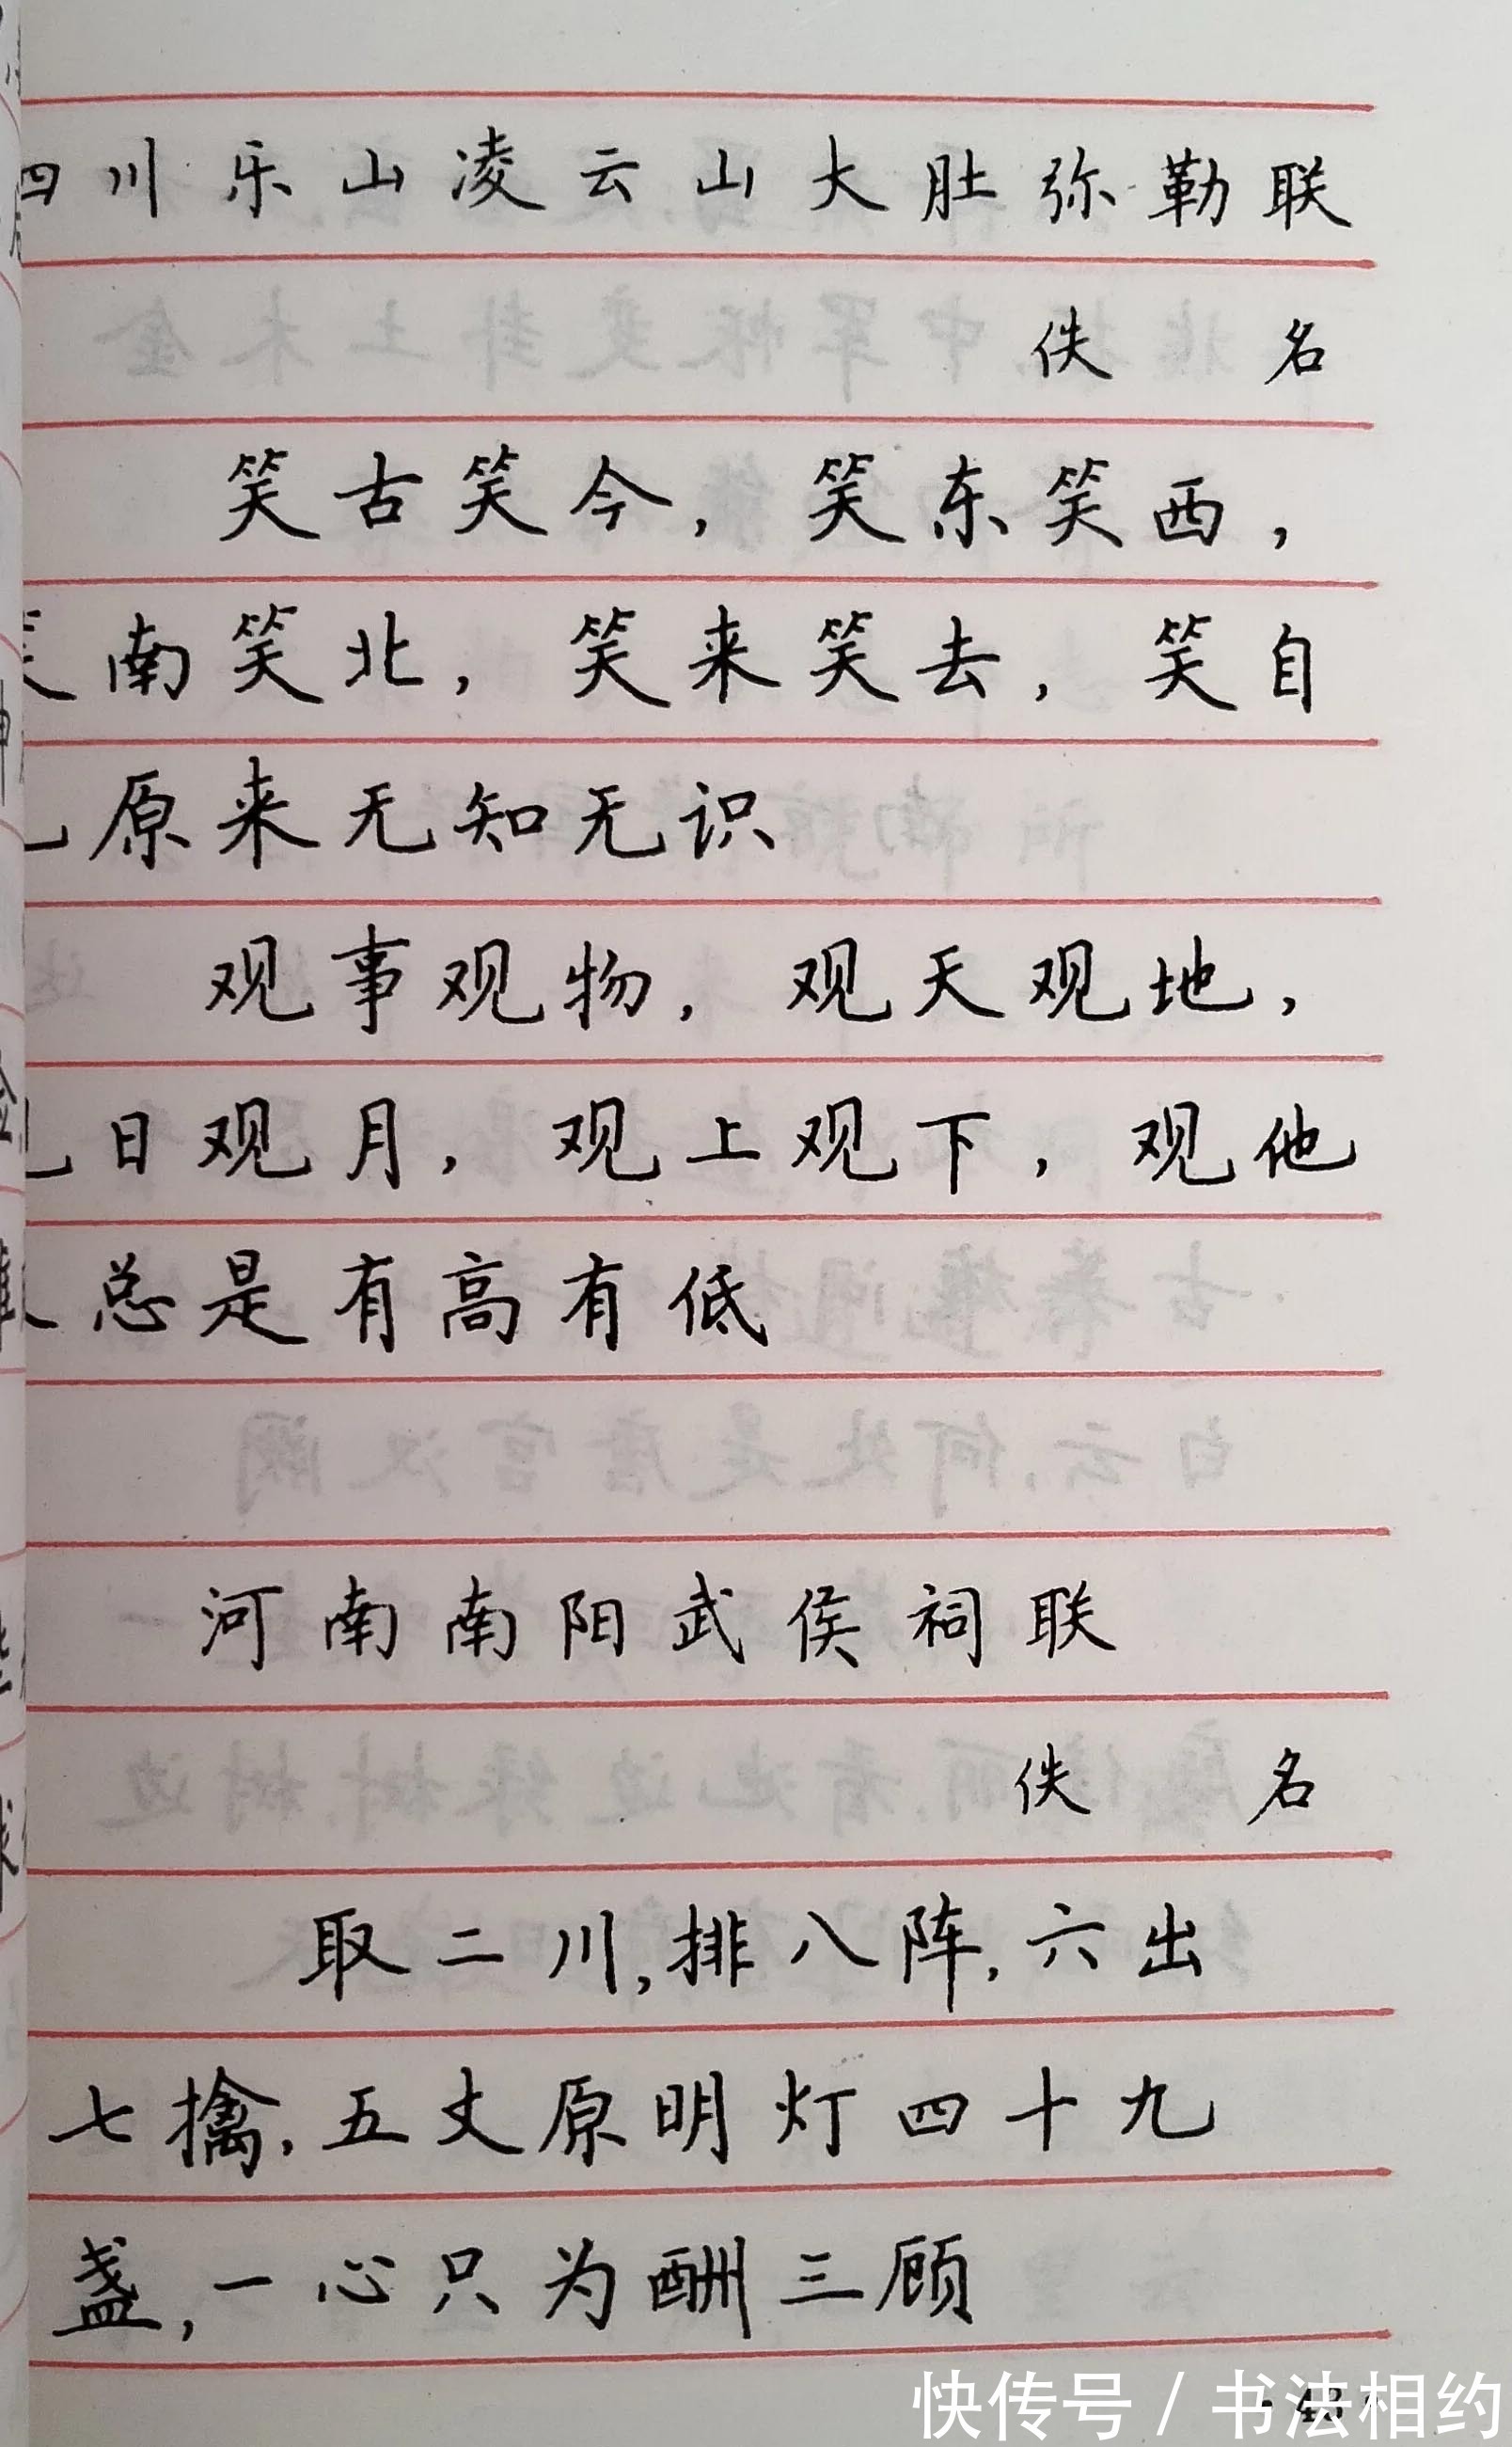 四川乐山凌云山大肚弥勒联
佚名
笑古笑今，笑东笑西，
笑南笑北，笑来笑去，笑自
己原来无知无识
观事观物，观天观地，
观日观月，观上观下，观他
人总是有高有低
河南南阳武侯祠联
佚名
取二川，排八阵，六出
七擒，五丈原明灯四十九
盏，一心只为酬三顾
快传号 / 书法相约